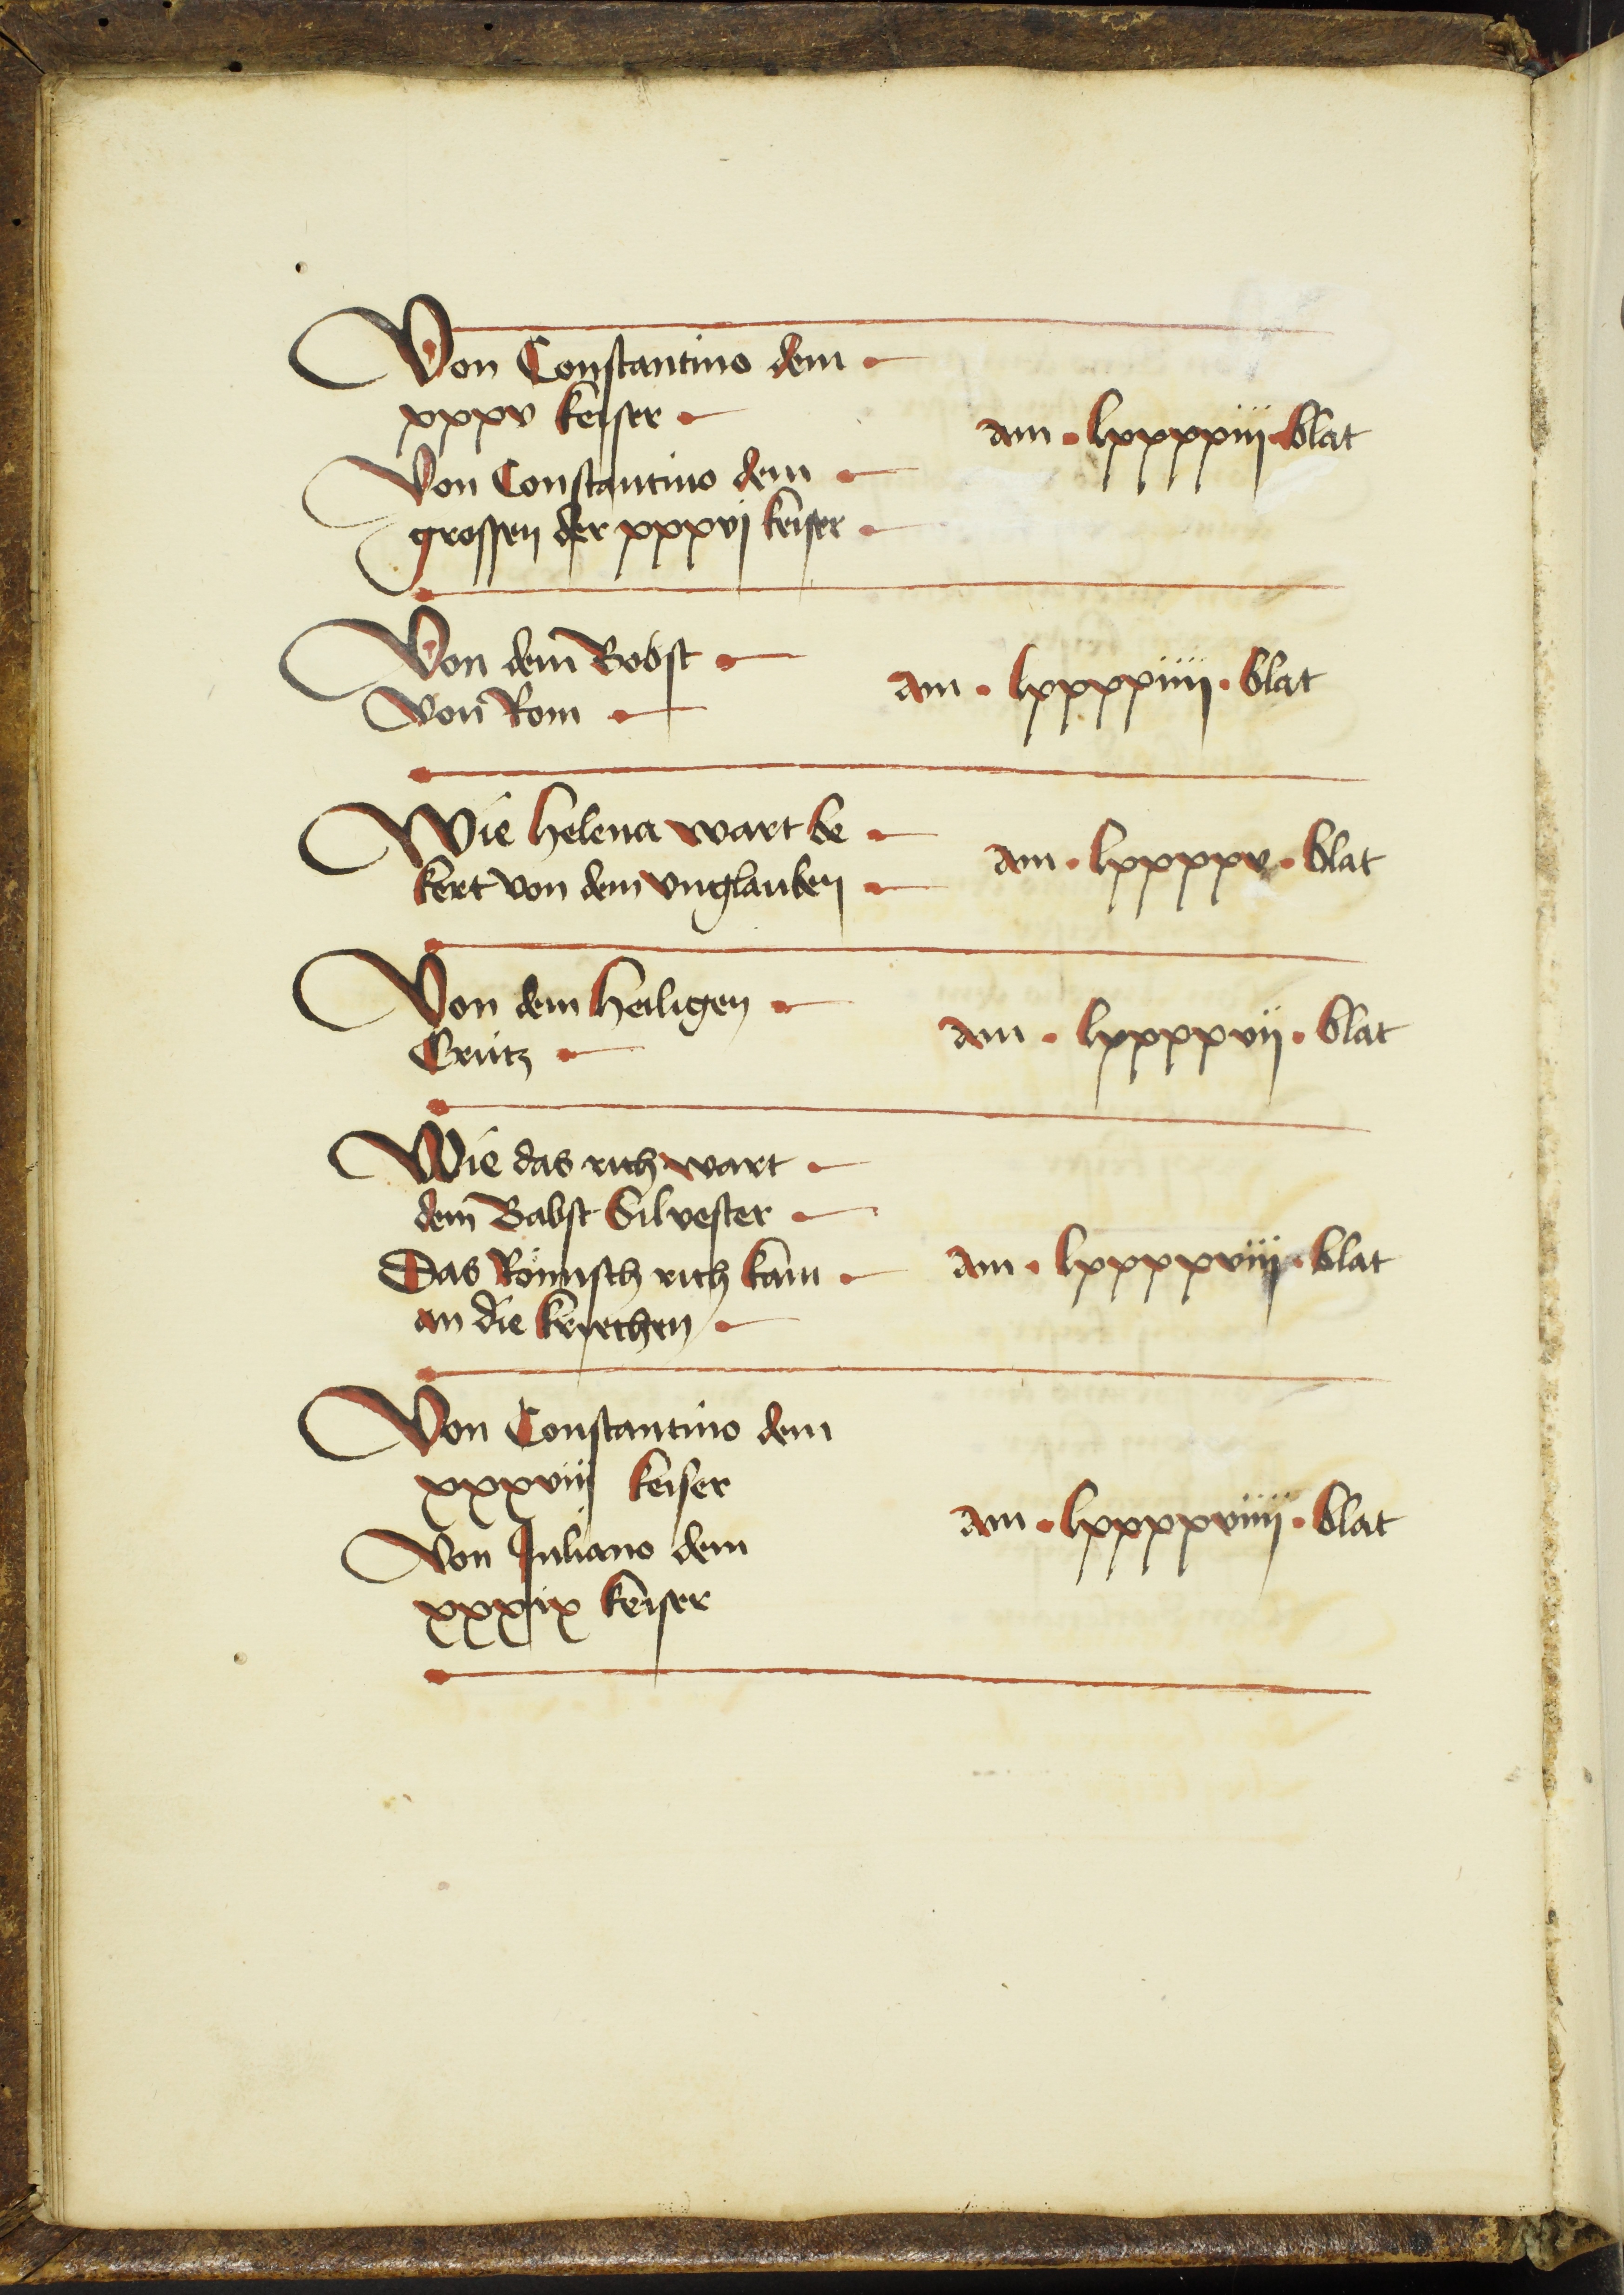 Von Constantino dem
xxxv keiser
am · lxxxxiij · blat
Von Constantino dem
grossen der xxxvj keiser
Von dem Bobst
von Rom
am · lxxxxiiij · blat
Wie helena wart be
kert von dem vnglauben
am · lxxxxv · blat
Von dem heiligen
Crütz
am · lxxxxvij · blat
Wie das rich wart
dem Babst Silvester
Das Römisch rich kam
am · lxxxxviij · blat
an die kriechen
Von Constantino dem
xxxviij keiser
am · lxxxxviiij · blat
Von Juliano dem
xxxix keiser